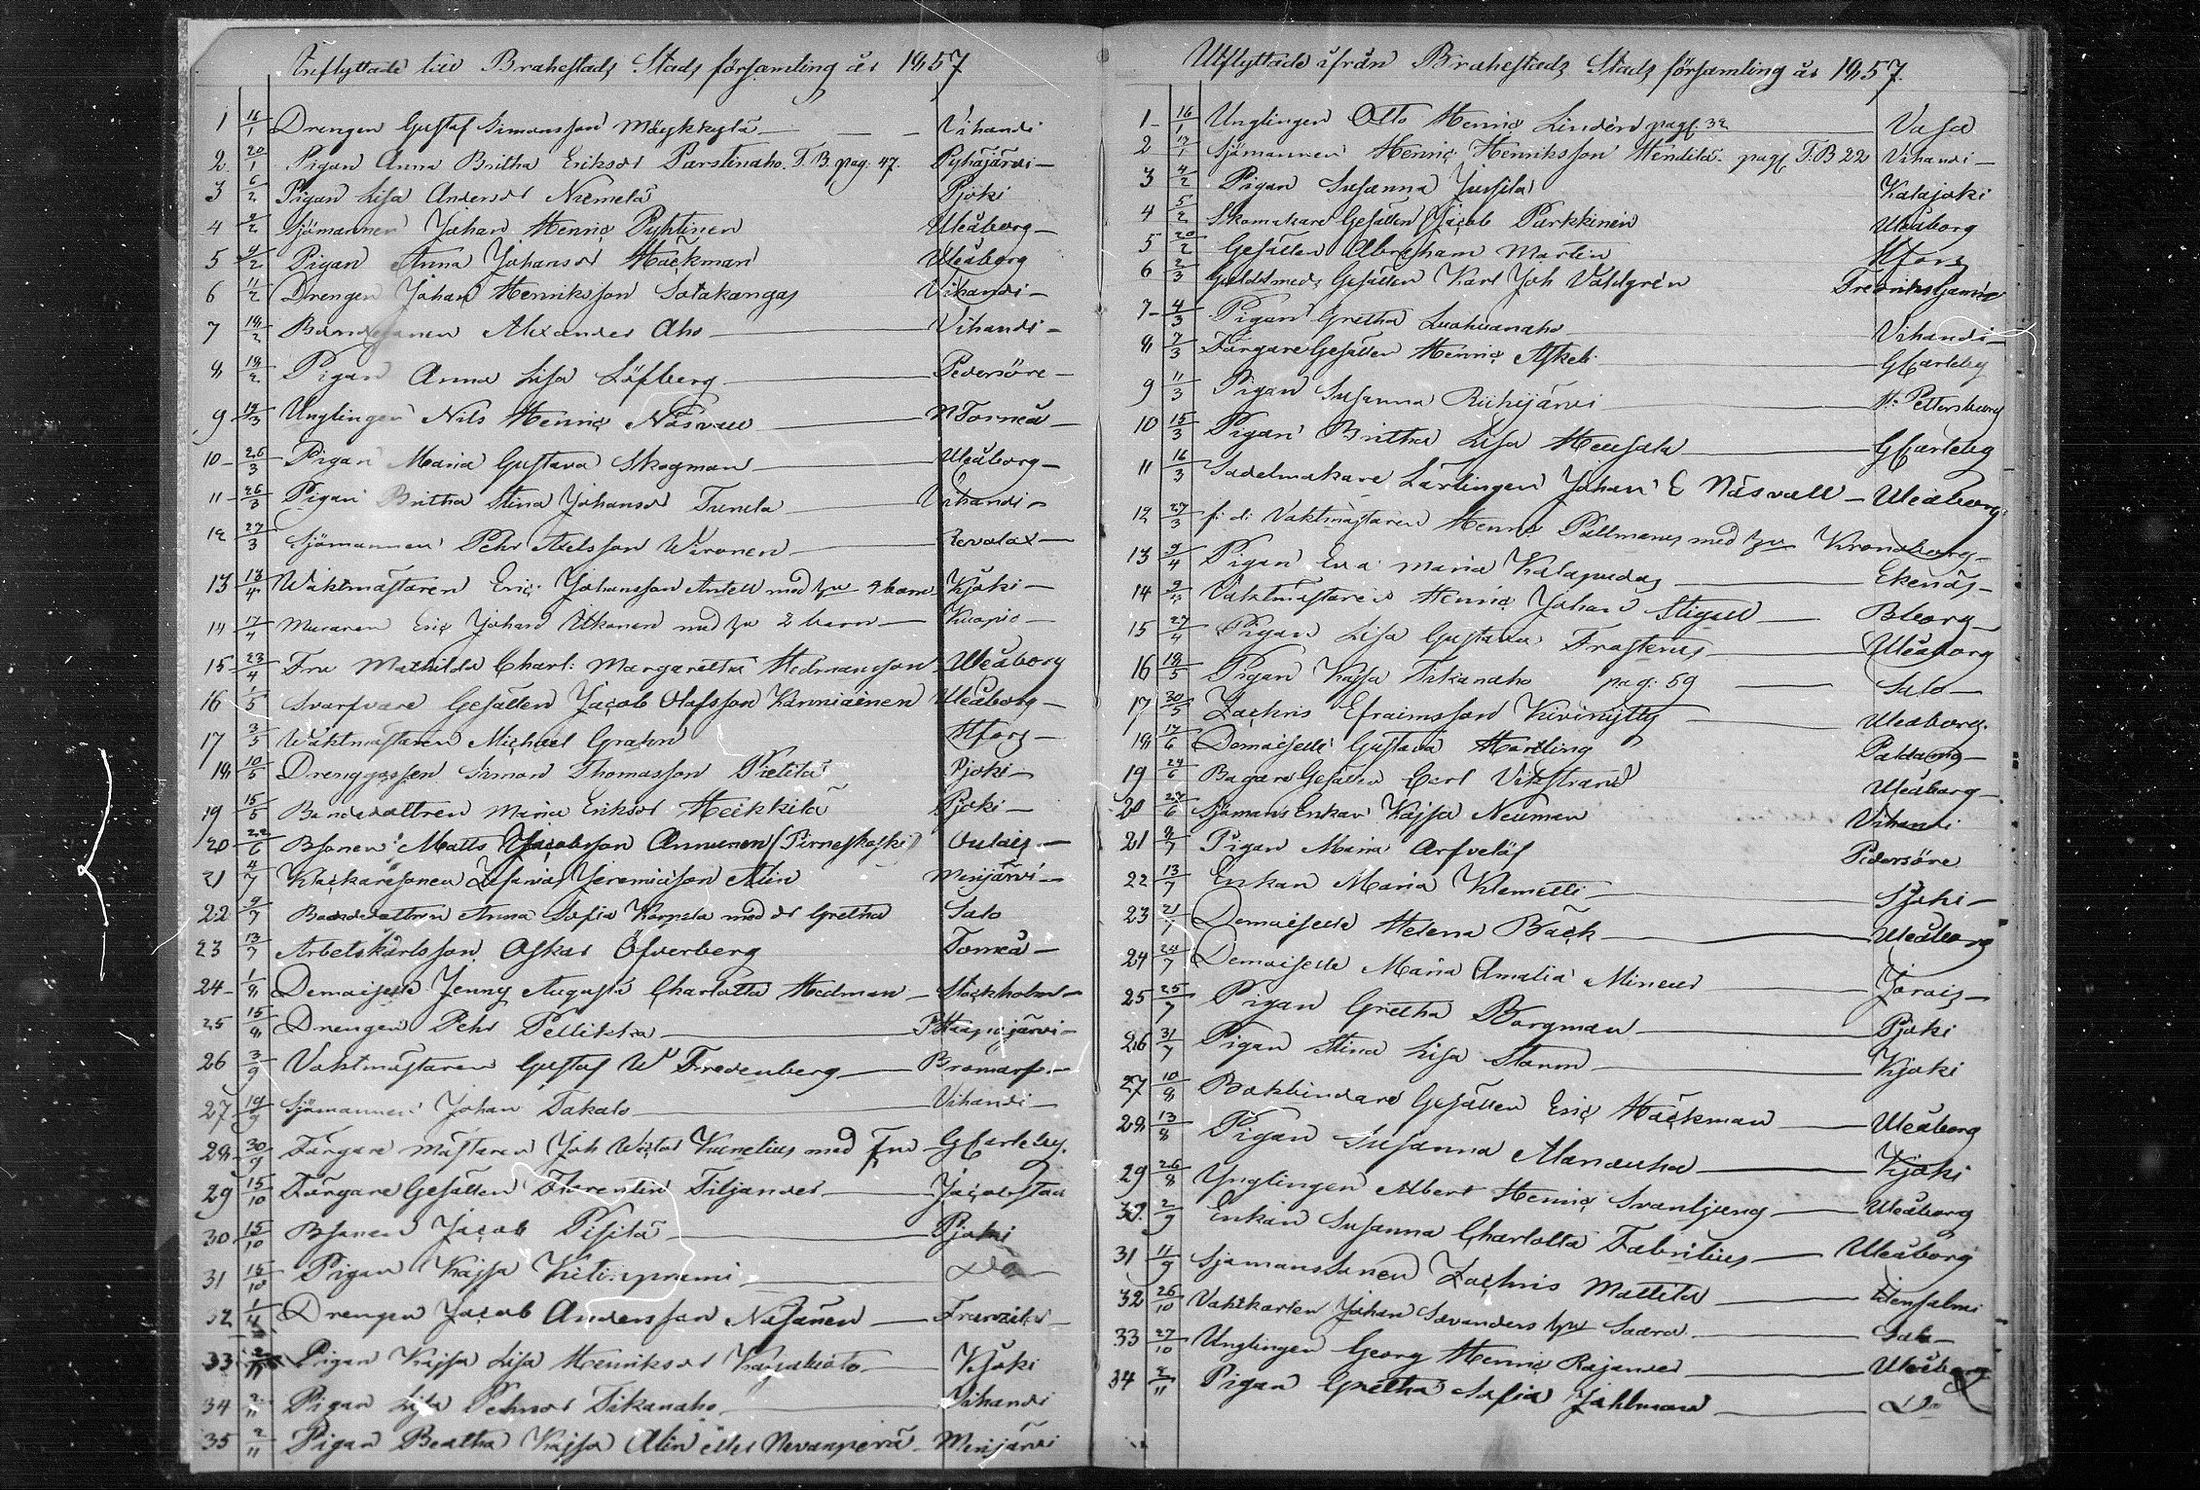 Inflyttade till Brahestads Stads församling år 1857
1 16/1 Drengen Gustaf Simonsson Mäykkylä Vihandi
2 20/1 Pigan Anna Britha Eriksdr Parstinaho. T. B pag. 47. Pyhäjärvi
3 6/2 Pigan Lisa Andersdr Niemelä Pjoki
4 9/2 Sjömannen Johan Henric Pyhtinen Uleåborg
5 9/2 Pigan Anna Johansdr Häckman Uleåborg
6 11/2 Drengen Johan Henriksson Satakangas Vihandi
7 18/2 Bondesonen Alexander Aho Vihandi
8 18/2 Pigan Anna Lisa Löfberg Pedersöre
9 14/3 Unglingen Nils Henric Näsvall N Torneå
10 26/3 Pigan Maria Gustava Skogman Uleåborg
11 26/3 Pigan Britha Stina Johansdr Tunela Vihandi
12 27/3 Sjömannen Pehr Axelsson Wironen Revolax
13 13/4 Waktmästaren Eric Johansson Antell med hu 4 barn Kjoki
14 17/4 Muraren Eric Johan Itkonen med hu 2 barn Kuopio
15 23/4 Fru Mathilda Charl: Margaretha Hedmansson Uleåborg
16 1/5 Svarfvare Gesällen Jacob Olofsson Kärniäinen Uleåborg
17 3/5 Waktmästaren Michael Grahn Hfors
18 10/5 Drenggossen Simon Thomasson Pietilä Pjoki
19 15/5 Bondedottren Maria Eriksdr Heikkilä Pjoki
20 22/6 Bsonen Matts Jacobsson Annunen (Pirneskoski) Oulais
21 4/7 Klockaresonen Zefanias Jeremiasson Alin Merijärvi
22 9/7 Bondedottren Anna Sofia Karpela med dr Gretha Salo
23 13/7 Arbetskarlsson Oskar Öfverberg Torneå
24 1/8 Demoiselle Jenny Augusta Charlotta Hedman Stockholm
25 15/8 Drengen Pehr Pellikka Haapajärvi
26 3/9 Vaktmästaren Gustaf W Fredenberg Bromarf
27 19/9 Sjömannen Johan Takalo Vihandi
28 30/9 Färgare mästaren Joh Victor Kunelius med Fru GCarleby.
29 15/10 Färgare Gesällen Florentin Tiljander Jacobstad
30 15/10 Bsonen Jacob Pisilä Pjoki
31 18/10 Pigan Kajsa Do
32 1/11 Drengen Jacob Andersson Nasänen Frantzila
33 2/11 Pigan Kajsa Lisa Henriksdr Kjoki
34 2/11 Pigan Lisa Pehrsdr Tikanaho Vihandi
35 2/11 Pigan Beatha Kajsa Alin eller Nevanperä Merijärvi
Utflyttade ifrån Brahestads Stads församling år 1857.
1 16/1 Unglingen Otto Henric Lindén pag. 32 Vasa
2 17/1 Sjömannen Henric Henriksson Hendilä pag T: B 22 Vihandi
3 4/2 Pigan Susanna Jussila Kalajoki
4 5/2 Skomakare Gesällen Jacob Parkkinen Uleåborg
5 20/2 Gesällen Abraham Martin Hfors
6 2/3 Guldsmeds Gesällen Karl Joh Vahlgrén Fredrikshamn
7 4/3 Pigan Gretha Luohuanaho Vihandi
8 7/3 Färgare Gesällen Henric Askeli GCarleby
9 11/3 Pigan Susanna Riihijärvi St. Pettersburg
10 15/3 Pigan Britha Lisa Heusala GCarleby
11 16/3 Sadelmakare Lärlingen Johan E Näsvall Uleåborg
12 27/3 f: d: Vaktmästaren Henric Pällmans med hu Kronoborg
13 9/4 Pigan Eva Maria Kalapudas Ekenäs
14 9/4 Vaktmästaren Henric Johan Stigell Bborg
15 27/4 Pigan Lisa Gustava Frosterus Uleåborg
16 18/5 Pigan Kajsa Tikanaho pag: 59 Salo
17 30/5 Zachris Efraimsson Kivinytty Uleåborg
18 17/6 Demoiselle Gustava Harling Paldamo
19 24/6 Bagare Gesällen Carl Vikstrand Uleåborg
20 27/6 Sjömans Enkan Kajsa Neuman Vihandi
21 8/7 Pigan Maria Arfvelöf Pedersöre
22 13/7 Enkan Maria Klemetti Sjoki
23 21/7 Demoiselle Helena Bäck Uleåborg
24 24/7 Demoiselle Maria Amalia Mineur Jorois
25 25/7 Pigan Gretha Borgman Pjoki
26 31/7 Pigan Stina Lisa Storm Kjoki
27 10/8 Bokbindare Gesällen Eric Häckman Uleåborg
28 13/8 Pigan Susanna Alanauha Kjoki
29 26/8 Ynglingen Albert Henric Svanljung Uleåborg
30. 2/9 Enkan Susanna Charlotta Fabritius Uleåborg
31 11/9 Sjömanssonen Zachris Mattila Idensalmi
32 26/10 Vaktkarlen Johan Savanders hu Saara Salo
33 27/10 Unglingen Georg Henric Rajander Uleåborg
34 2/11 Pigan Gretha Sofia Jahlman Do